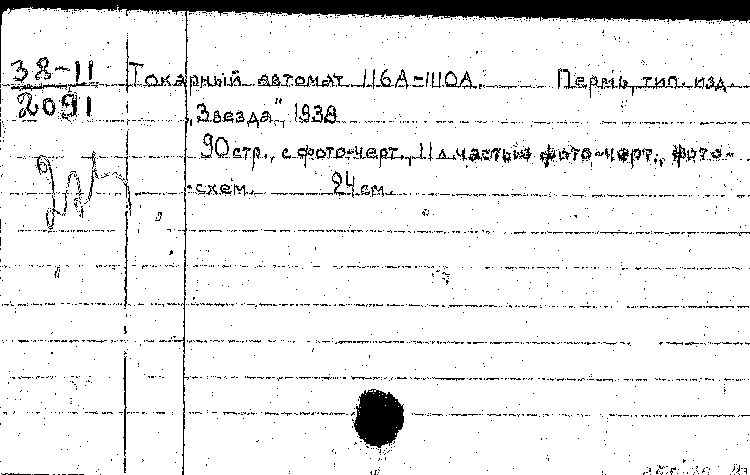 38-11
2091
Токарный автомат 116А-110А. Пермь, тип. изд.
„Звезда", 1938
90 стр., с фото-черт., 11 л. частью фото-черт., фото-
схем. 24 см.